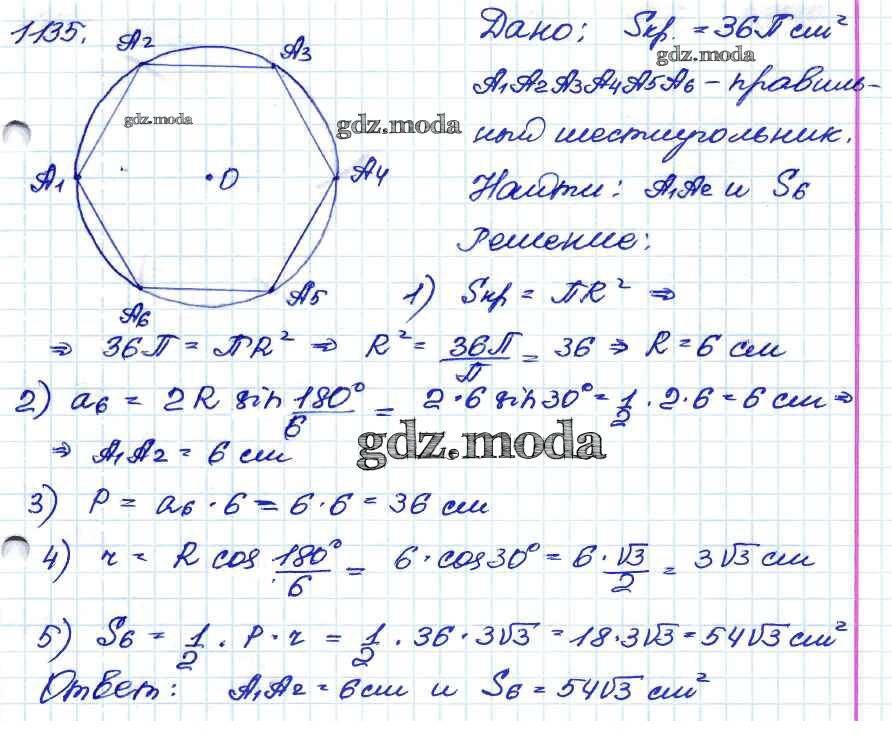 1135.
A2 A3
A1 O A4
A6 A5
Дано: Sкр. = 36π см²
A1A2A3A4A5A6 – правиль-
ный шестиугольник.
Найти: A1A2 и S6
Решение:
1) Sкр = πR² ⇒
⇒ 36π = πR² ⇒ R² = 36π/π = 36 ⇒ R = 6 см
2) a6 = 2R sin 180°/6 = 2·6 sin 30° = 1/2 · 2·6 = 6 см ⇒
⇒ A1A2 = 6 см
3) P = a6 · 6 = 6·6 = 36 см
4) r = R cos 180°/6 = 6 · cos 30° = 6·√3/2 = 3√3 см
5) S6 = 1/2 · P · r = 1/2 · 36 · 3√3 = 18·3√3 = 54√3 см²
Ответ: A1A2 = 6 см и S6 = 54√3 см²
gdz.moda
gdz.moda
gdz.moda
gdz.moda